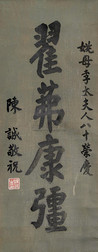 姚母李太夫人八十榮慶
翟茀康彊
陳誠敬祝